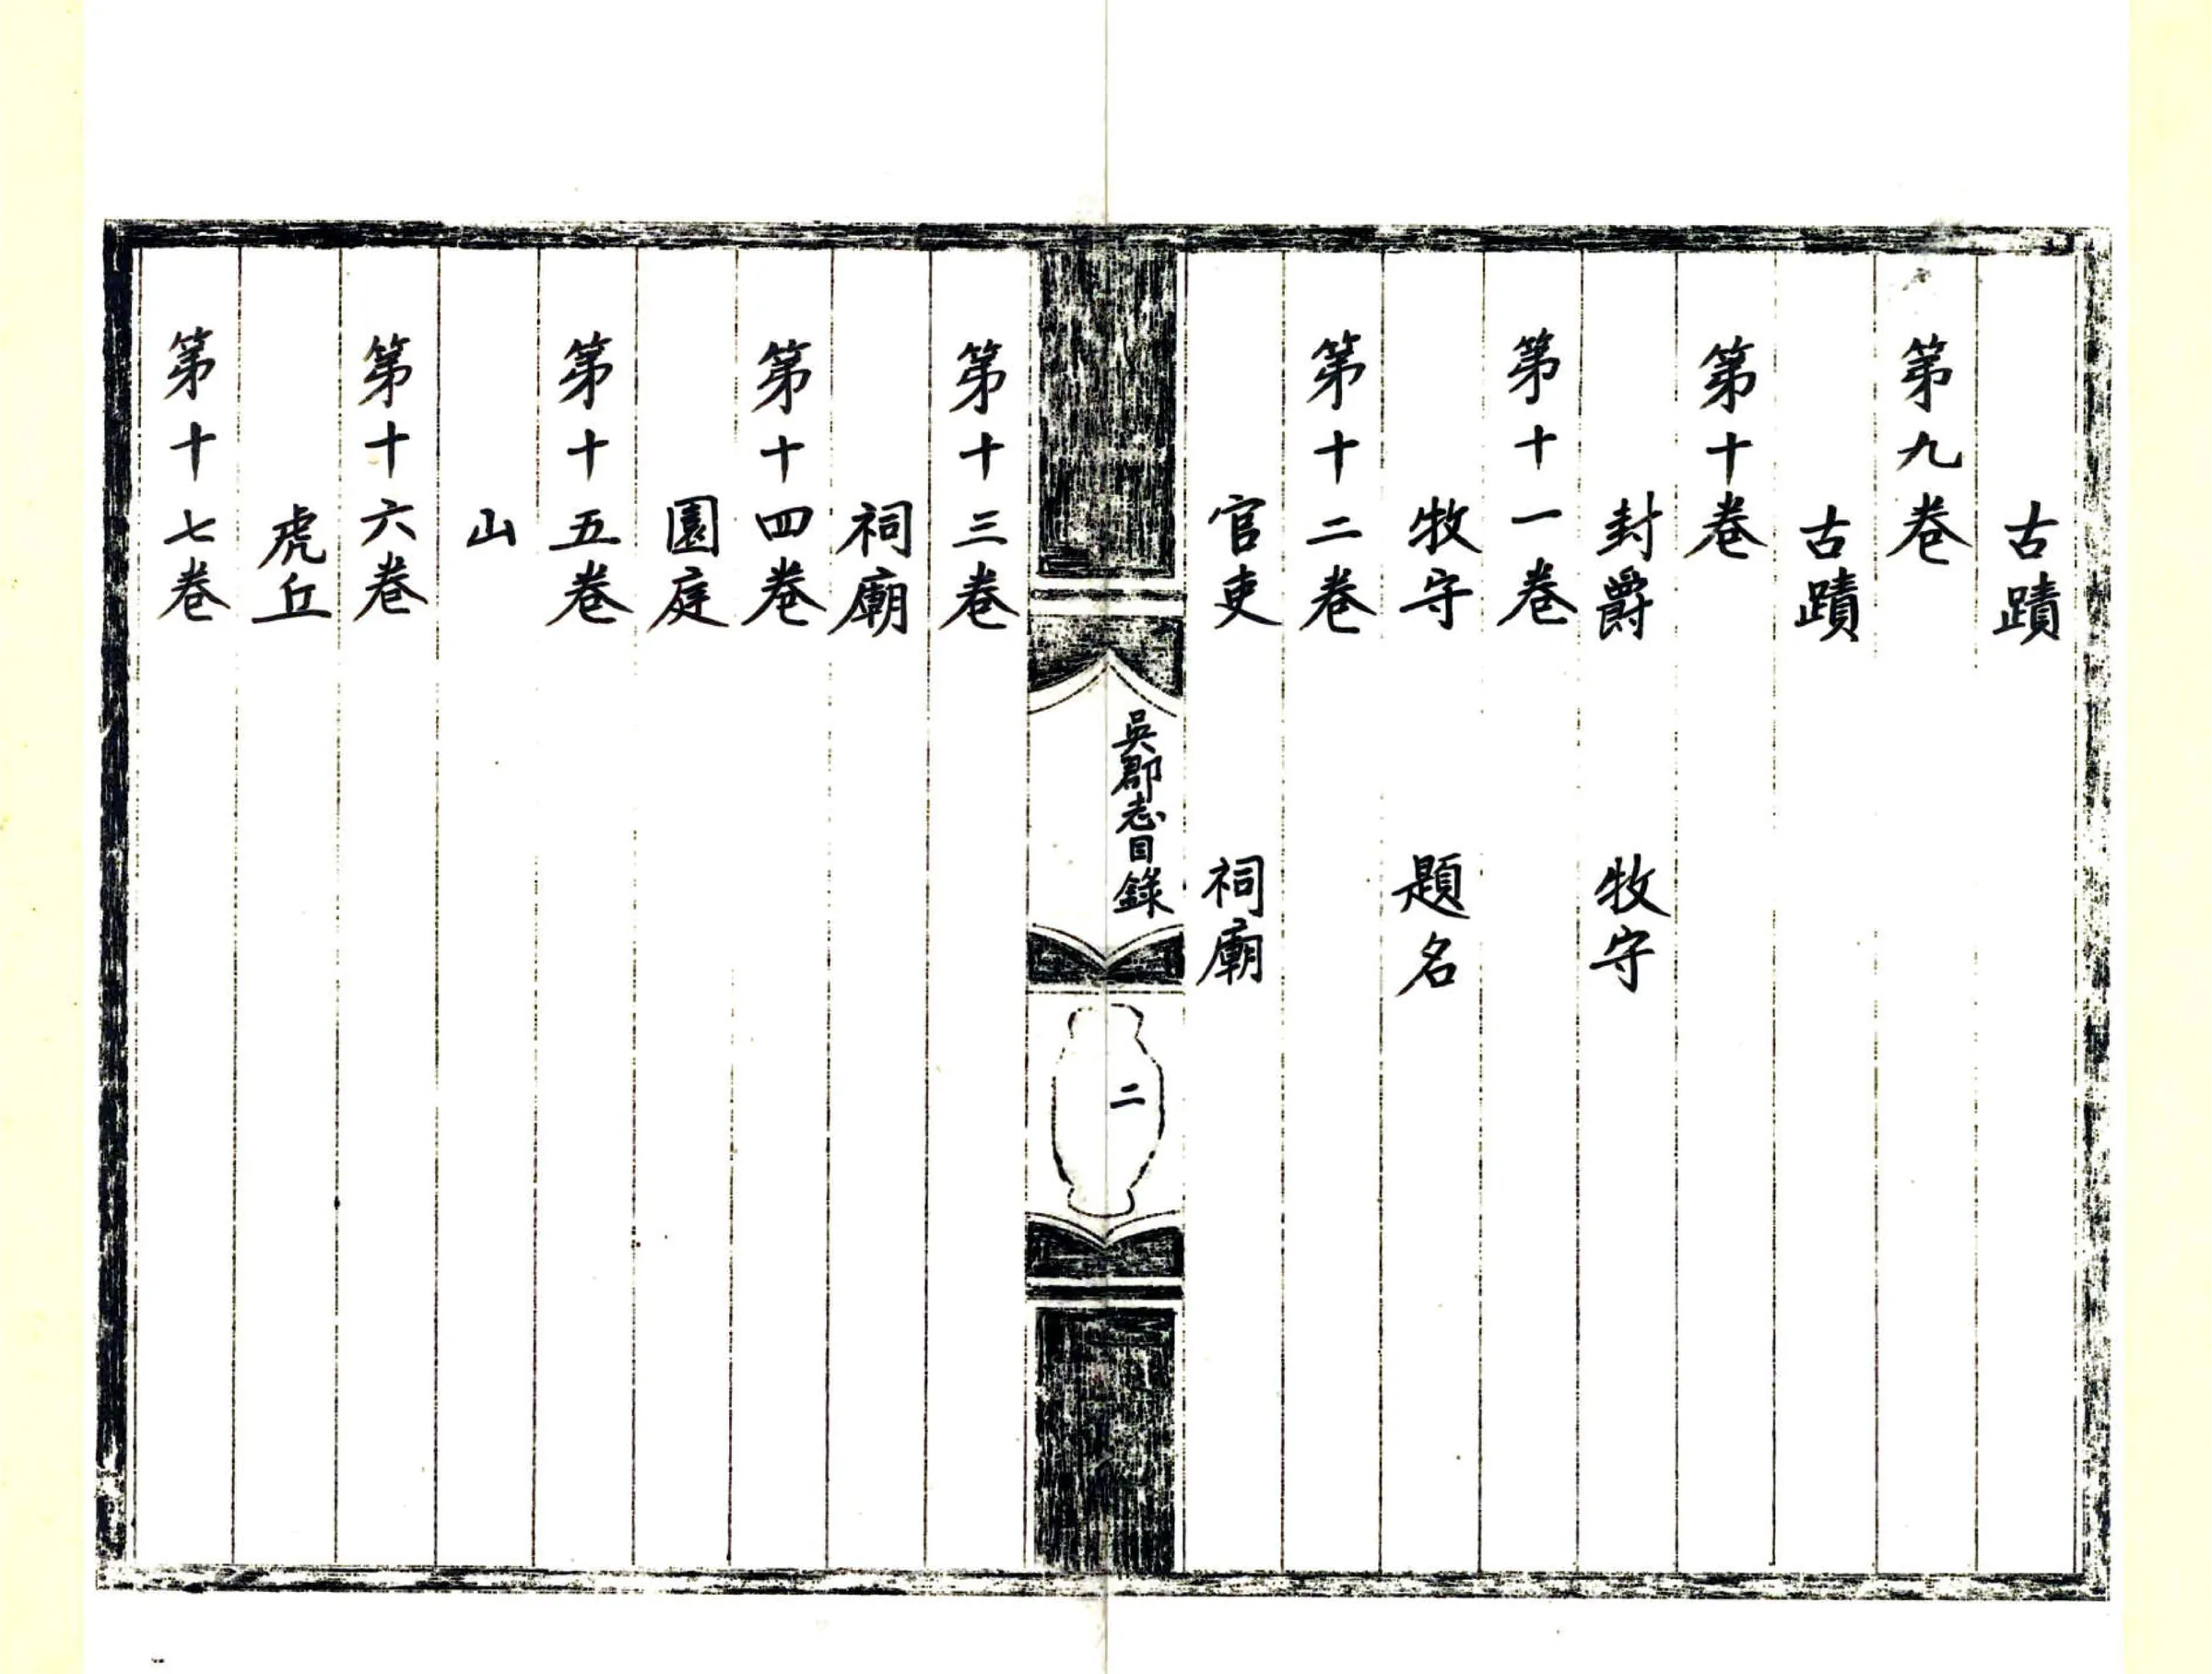 古蹟
第九卷
古蹟
第十卷
封爵 牧守
第十一卷
牧守 題名
第十二卷
官吏 祠廟
吳郡志目錄 二
第十三卷
祠廟
第十四卷
園庭
第十五卷
山
第十六卷
虎丘
第十七卷